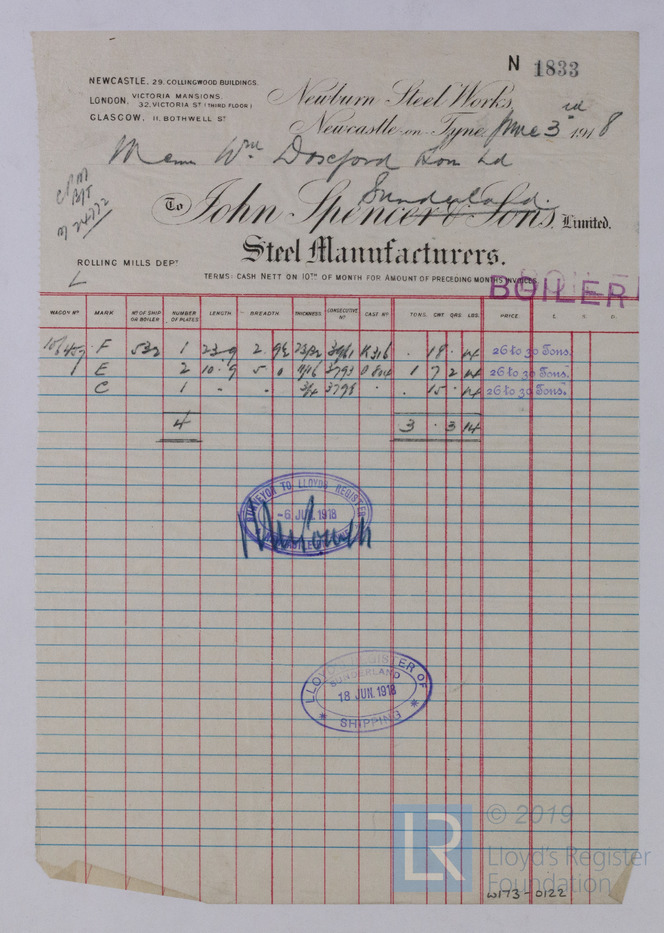 N 1833
NEWCASTLE, 29, COLLINGWOOD BUILDINGS.
LONDON, VICTORIA MANSIONS, 32, VICTORIA ST (THIRD FLOOR)
GLASGOW, 11, BOTHWELL ST
Newburn Steel Works,
Newcastle-on-Tyne, June 3rd 1918
Wm Doxford Sons Ld
Sunderland.
To John Spencer & Sons, Limited.
Steel Manufacturers.
ROLLING MILLS DEPT
TERMS: CASH NETT ON 10TH OF MONTH FOR AMOUNT OF PRECEDING MONTHS INVOICES.
BOILER
WAGON No MARK No OF SHIP OR BOILER NUMBER OF PLATES LENGTH BREADTH THICKNESS CONSECUTIVE No CAST No TONS. CWT. QRS. LBS. PRICE £ S. D.
F 532 1 23 9 2 9½ 23/32 3961 K316 . 18 . 14 26 to 30 Tons.
E 2 10 9 5 0 11/16 3793 0804 1 7 2 14 26 to 30 Tons.
C 1 " " " 3/4 3798 . . 15 . 14 26 to 30 Tons.
4 3 . 3 14
SURVEYOR TO LLOYDS REGISTER
-6 JUN. 1918
LLOYD'S REGISTER OF
SUNDERLAND
18 JUN. 1918
* SHIPPING *
LR © 2019
Lloyd's Register
Foundation
W173-0122